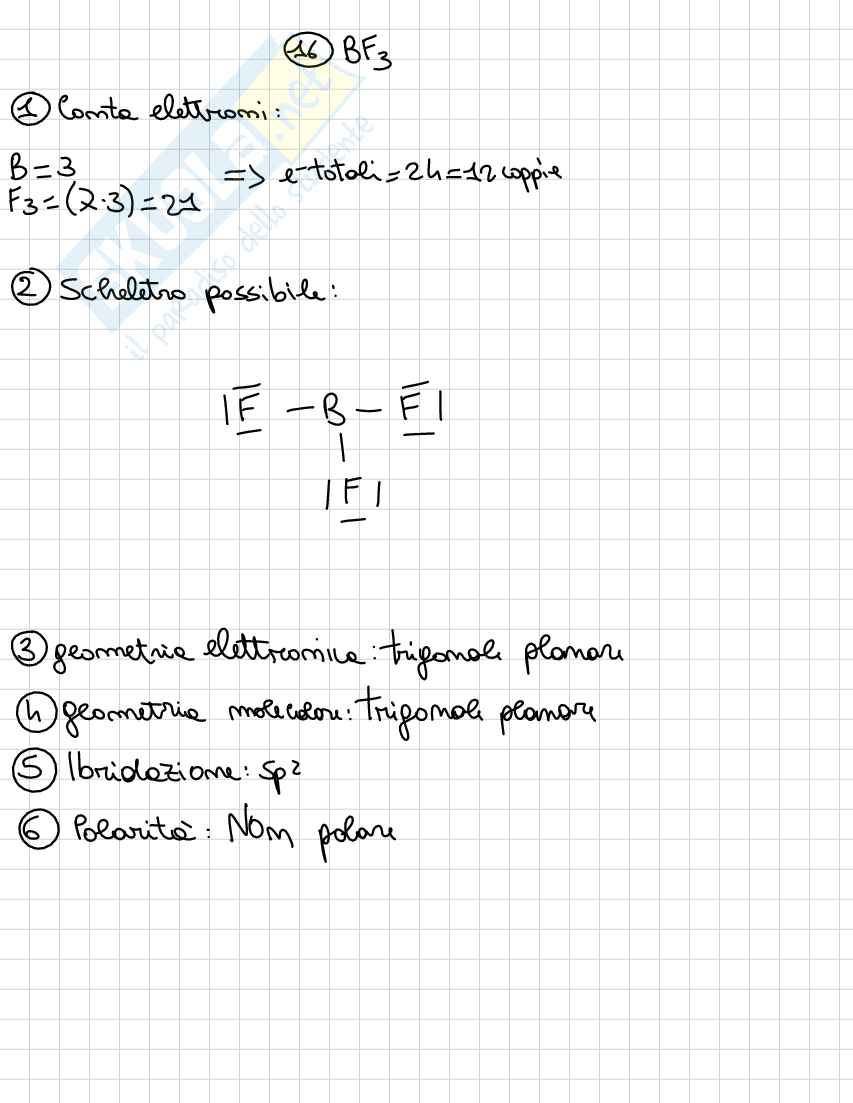 16 BF3
1 Conta elettroni:
B = 3
F3 = (7·3) = 21
=> e- totali = 24 = 12 coppie
2 Scheletro possibile:
|F – B – F|
|
|F|
3 geometria elettronica: trigonale planare
4 geometria molecolare: trigonale planare
5 Ibridazione: sp2
6 Polarità: Non polare
SKUOLA.net
il paradiso dello studente